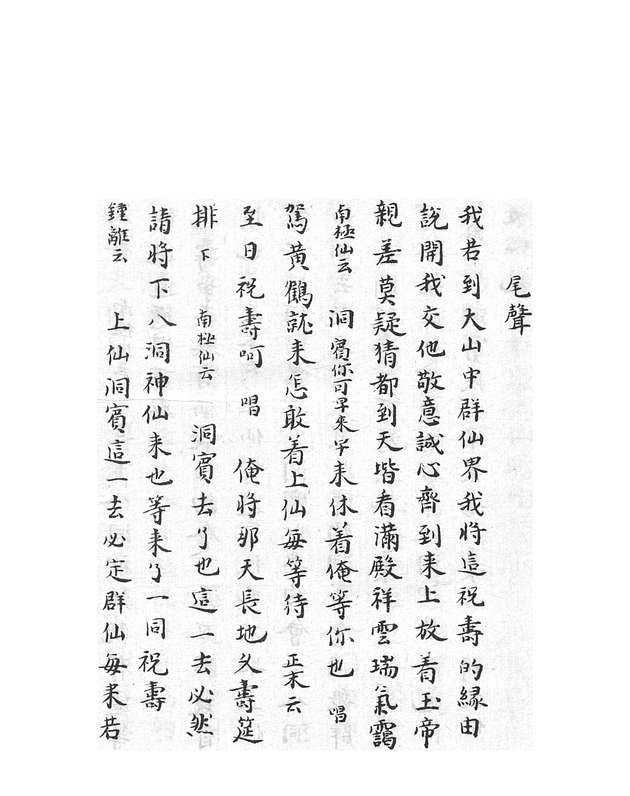 尾聲
我若到大山中群仙界我將這祝壽的緣由
說開我交他敬意誠心齊到来上放着玉帝
親差莫疑猜都到天堦看滿殿祥雲瑞氣靄
南極仙云 洞賔你可早来早来休着俺等你也 唱
駕黄鶴就来怎敢着上仙每等待 正末云
至日祝壽呵 唱 俺將那天長地久壽筵
排 下 南極仙云 洞賔去了也這一去必然
請將下八洞神仙来也等来了一同祝壽
鍾離云 上仙洞賔這一去必定群仙每来若